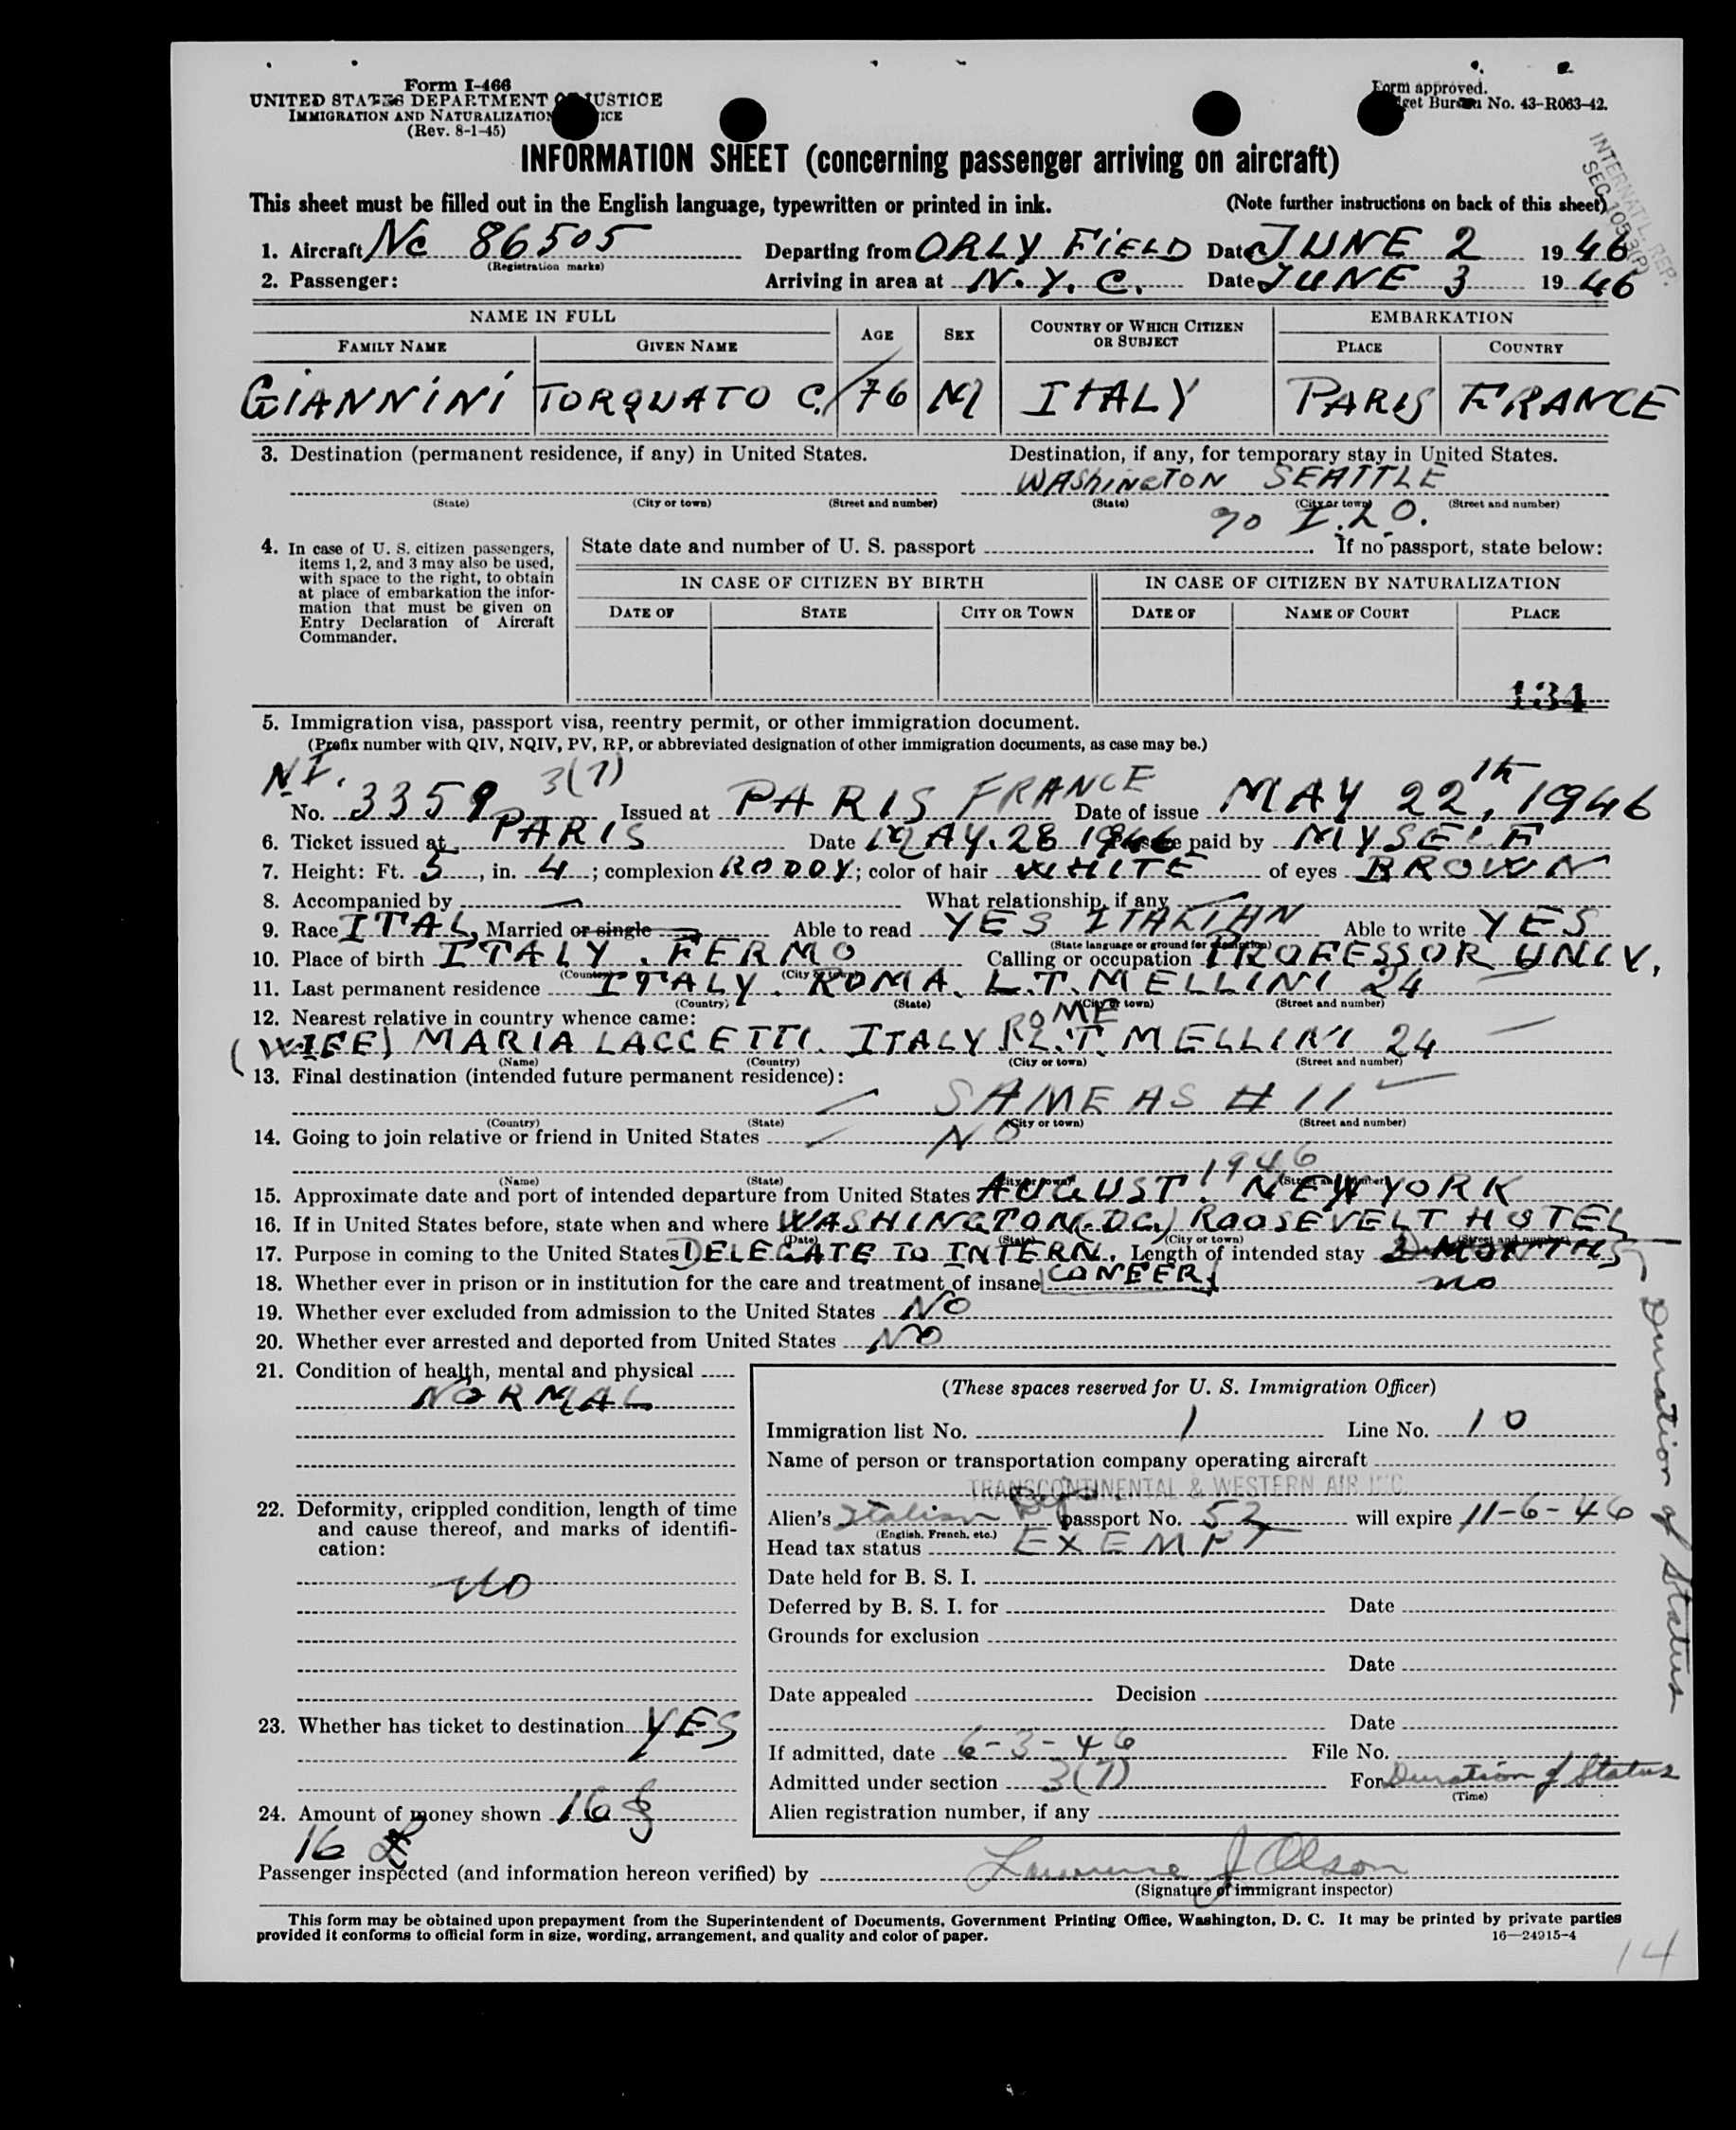 Form I-466
UNITED STATES DEPARTMENT OF JUSTICE
IMMIGRATION AND NATURALIZATION SERVICE
(Rev. 8-1-45)
Form approved.
Budget Bureau No. 43-R063-42.
INTERNAT'L REP.
INFORMATION SHEET (concerning passenger arriving on aircraft)
This sheet must be filled out in the English language, typewritten or printed in ink. (Note further instructions on back of this sheet)
1. Aircraft Nc 86505 Departing from ORLY FIELD Date JUNE 2 1946
(Registration marks)
2. Passenger: Arriving in area at N.Y.C. Date JUNE 3 1946
NAME IN FULL AGE SEX COUNTRY OF WHICH CITIZEN OR SUBJECT EMBARKATION
FAMILY NAME GIVEN NAME PLACE COUNTRY
GIANNINI TORQUATO C. 76 M ITALY PARIS FRANCE
3. Destination (permanent residence, if any) in United States. Destination, if any, for temporary stay in United States.
WASHINGTON SEATTLE
(State) (City or town) (Street and number) (State) (City or town) (Street and number)
I.L.O.
4. In case of U. S. citizen passengers, items 1, 2, and 3 may also be used, with space to the right, to obtain at place of embarkation the information that must be given on Entry Declaration of Aircraft Commander.
State date and number of U. S. passport If no passport, state below:
IN CASE OF CITIZEN BY BIRTH IN CASE OF CITIZEN BY NATURALIZATION
DATE OF STATE CITY OR TOWN DATE OF NAME OF COURT PLACE
134
5. Immigration visa, passport visa, reentry permit, or other immigration document.
(Prefix number with QIV, NQIV, PV, RP, or abbreviated designation of other immigration documents, as case may be.)
N.I. 3(7)
No. 3359 Issued at PARIS FRANCE Date of issue MAY 22th, 1946
6. Ticket issued at PARIS Date MAY. 28 1946 Passage paid by MYSELF
7. Height: Ft. 5, in. 4; complexion RODDY; color of hair WHITE of eyes BROWN
8. Accompanied by — What relationship, if any —
9. Race ITAL, Married or single Able to read YES ITALIAN Able to write YES
(State language or ground for exemption)
10. Place of birth ITALY. FERMO Calling or occupation PROFESSOR UNIV.
(Country) (City or town)
11. Last permanent residence ITALY. ROMA. L.T. MELLINI 24
(Country) (State) (City or town) (Street and number)
12. Nearest relative in country whence came:
(WIFE) MARIA LACCETTI. ITALY ROME L.T. MELLINI 24
(Name) (Country) (City or town) (Street and number)
13. Final destination (intended future permanent residence):
SAME AS # 11
(Country) (State) (City or town) (Street and number)
14. Going to join relative or friend in United States NO
(Name) (State) (City or town) (Street and number)
15. Approximate date and port of intended departure from United States AUGUST 1946. NEW YORK
16. If in United States before, state when and where WASHINGTON (D.C.) ROOSEVELT HOTEL
(Date) (State) (City or town) (Street and number)
17. Purpose in coming to the United States DELEGATE TO INTERN. CONFER. Length of intended stay 2 MONTHS
18. Whether ever in prison or in institution for the care and treatment of insane no
19. Whether ever excluded from admission to the United States NO
20. Whether ever arrested and deported from United States NO
Duration of Status
21. Condition of health, mental and physical
NORMAL
22. Deformity, crippled condition, length of time and cause thereof, and marks of identification:
no
23. Whether has ticket to destination YES
24. Amount of money shown 16 $
16 £
(These spaces reserved for U. S. Immigration Officer)
Immigration list No. 1 Line No. 10
Name of person or transportation company operating aircraft
TRANSCONTINENTAL & WESTERN AIR INC.
Alien's Italian Dip. passport No. 52 will expire 11-6-46
(English, French, etc.)
Head tax status EXEMPT
Date held for B. S. I.
Deferred by B. S. I. for Date
Grounds for exclusion
Date
Date appealed Decision
Date
If admitted, date 6-3-46 File No.
Admitted under section 3(7) For Duration of Status
(Time)
Alien registration number, if any
Passenger inspected (and information hereon verified) by Lawrence J Olson
(Signature of immigrant inspector)
This form may be obtained upon prepayment from the Superintendent of Documents, Government Printing Office, Washington, D. C. It may be printed by private parties
provided it conforms to official form in size, wording, arrangement, and quality and color of paper. 16—24915-4
14